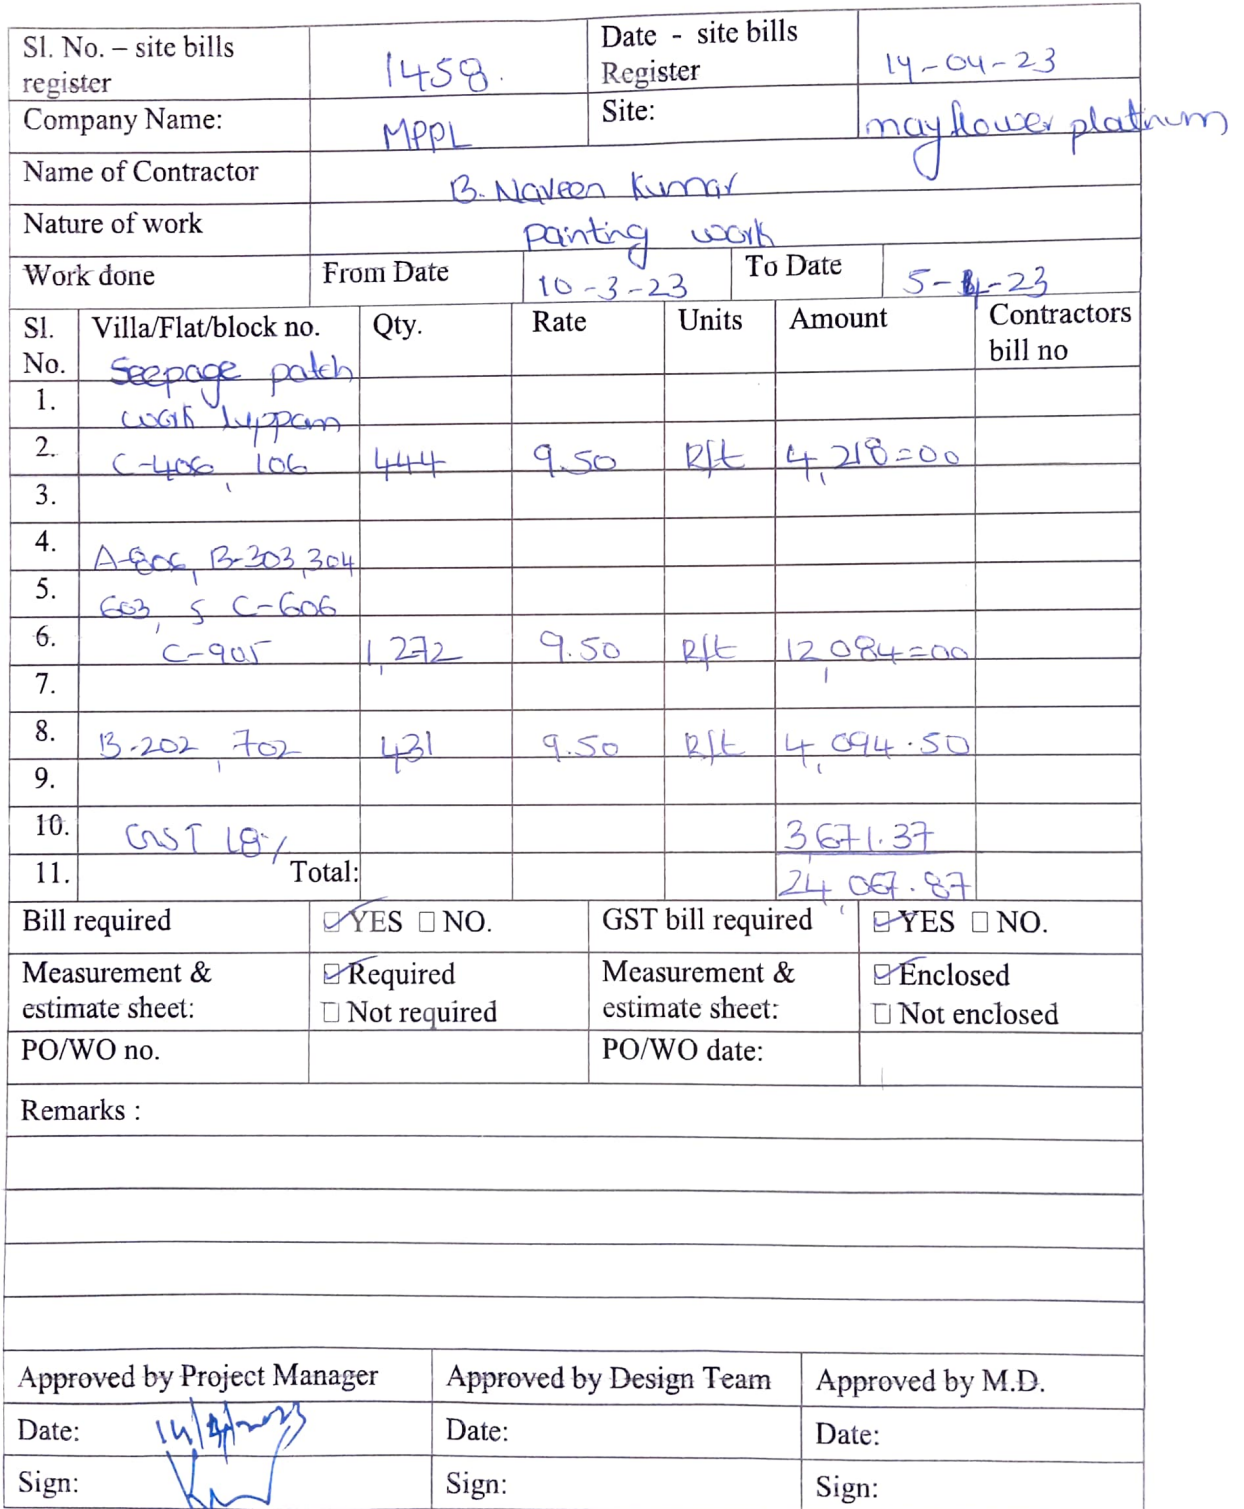 Sl. No. – site bills register 1458. Date - site bills Register 14-04-23
Company Name: MPPL Site: mayflower platinum
Name of Contractor B. Naveen Kumar
Nature of work painting work
Work done From Date 10-3-23 To Date 5-4-23
Sl. No. Villa/Flat/block no. Qty. Rate Units Amount Contractors bill no
Seepage patch
1. work luppam
2. C-406, 106 444 9.50 Rft 4,218=00
3.
4. A-806, B-303,304
5. 603, & C-606
6. C-905 1,272 9.50 Rft 12,084=00
7.
8. B-202, 702 431 9.50 Rft 4,094.50
9.
10. GST 18% 3671.37
11. Total: 24,067.87
Bill required YES NO. GST bill required YES NO.
Measurement & estimate sheet: Required Not required Measurement & estimate sheet: Enclosed Not enclosed
PO/WO no. PO/WO date:
Remarks :
Approved by Project Manager Approved by Design Team Approved by M.D.
Date: 14/4/2023 Date: Date:
Sign: Sign: Sign: